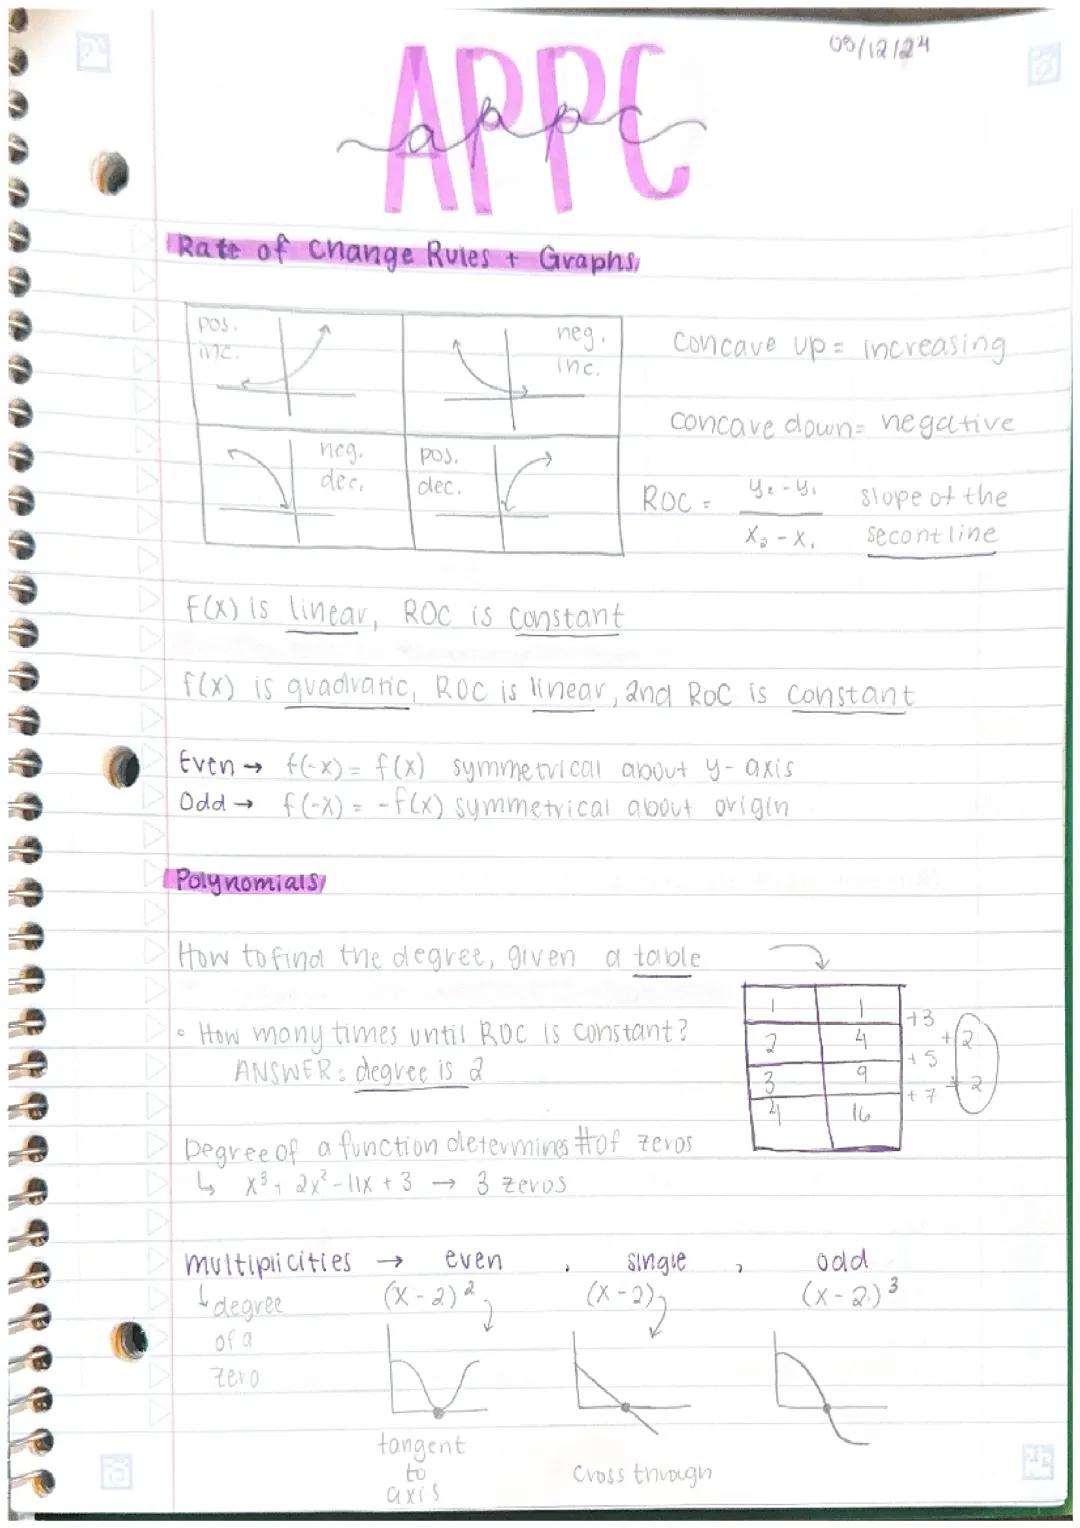 09/12/24
APPC
appc
Rate of Change Rules + Graphs
pos.
inc.
neg.
inc.
neg.
dec.
pos.
dec.
concave up = increasing
concave down = negative
ROC = y₂-y₁ / x₂-x₁ slope of the
secont line
F(x) is linear, ROC is constant
f(x) is quadratic, ROC is linear, 2nd ROC is constant
Even → f(-x) = f(x) symmetrical about y-axis
Odd → f(-x) = -f(x) symmetrical about origin
Polynomials
How to find the degree, given a table
• How many times until ROC is constant?
ANSWER: degree is 2
1 1
2 4
3 9
4 16
+3
+5
+7
+2
+2
Degree of a function determines # of zeros
↳ x³ + 2x² - 11x + 3 → 3 zeros
multiplicities → even , single , odd
↓ degree
of a
zero
(x-2)² (x-2) (x-2)³
tangent
to
axis
cross through